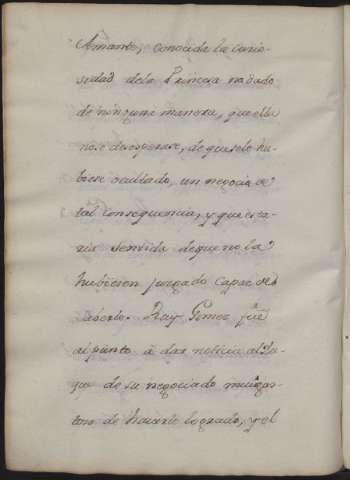 Amante, conocida la curio-
sidad dela Princesa no dudo
de ninguna manera, que ella
no se desesperase, de que sele hu-
biese ocultado, un negocio de
tal consequencia, y que esta-
ria sentida deque no la
hubiesen juzgado capaz de
saberlo. Ruy Gomez fue
al punto à dar noticia al Du-
que de su negociado mui gus-
toso de haverle logrado, y el